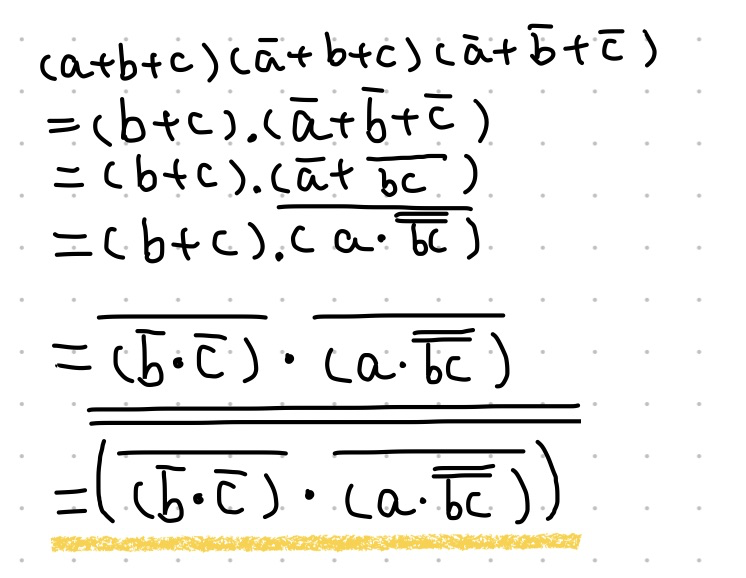 (a+b+c)(a̅+b+c)(a̅+b̅+c̅)
=(b+c).(a̅+b̅+c̅)
=(b+c).(a̅+\overline{bc})
=(b+c).\overline{(a·\overline{\overline{bc}})}
=\overline{(b̅·c̅)}·\overline{(a·\overline{\overline{bc}})}
=\overline{\overline{(\overline{(b̅·c̅)}·\overline{(a·\overline{\overline{bc}})})}}